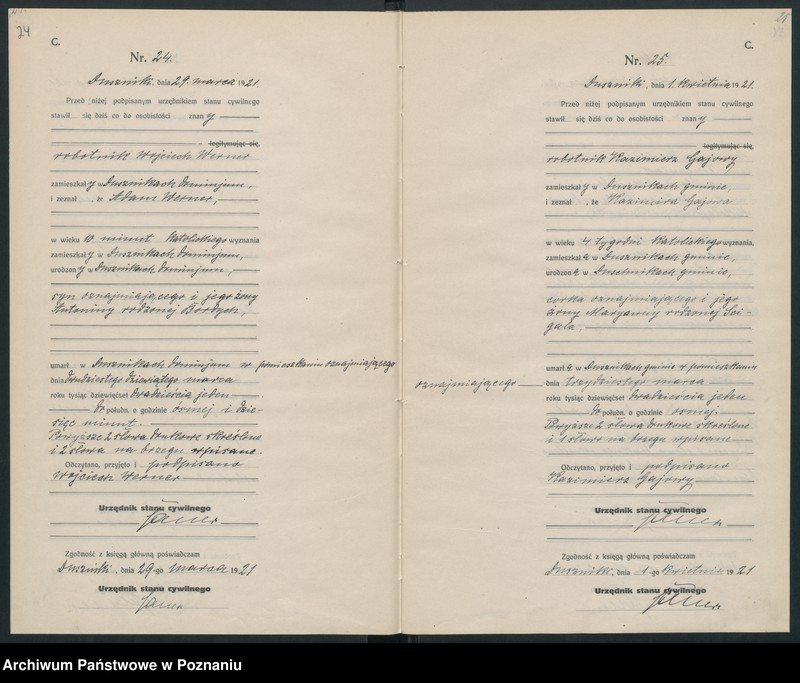 24
C.
Nr. 24.
Duszniki, dnia 29. marca 1921.
Przed niżej podpisanym urzędnikiem stanu cywilnego
stawił się dziś co do osobistości znany
legitymując się
robotnik Wojciech Werner
zamieszkały w Dusznikach dominjum,
i zeznał, że Adam Werner,
w wieku 10 minut katolickiego wyznania
zamieszkały w Dusznikach dominjum,
urodzony w Dusznikach dominjum,
syn oznajmiającego i jego żony
Antoniny rodzonej
umarł w Dusznikach dominjum w pomieszkaniu oznajmiającego
dnia dwudziestego dziewiątego marca
roku tysiąc dziewięćset dwudziestia jeden
do połudn. o godzinie ósmej i dzie-
sięć minut.
Powyższe 2 słowa drukowe skreślone
i 2 słowa na brzegu wpisane.
Odczytano, przyjęto i podpisano
Wojciech Werner
Urzędnik stanu cywilnego
Zgodność z księgą główną poświadczam
Duszniki, dnia 29-go marca 1921
Urzędnik stanu cywilnego
25
C.
Nr. 25.
Duszniki, dnia 1. kwietnia 1921.
Przed niżej podpisanym urzędnikiem stanu cywilnego
stawił się dziś co do osobistości znany
legitymując się
robotnik Kazimierz Gajowy
zamieszkały w Dusznikach gminie,
i zeznał, że Kazimiera Gajowa
w wieku 4 tygodni katolickiego wyznania,
zamieszkała w Dusznikach gminie,
urodzona w Dusznikach gminie,
córka oznajmiającego i jego
żony Maryanny rodzonej Ści-
gała.
umarła w Dusznikach gminie w pomieszkaniu
oznajmiającego
dnia trzydziestego marca
roku tysiąc dziewięćset dwudziestia jeden
do połudn. o godzinie ósmej.
Powyższe 2 słowa drukowe skreślone
i 1 słowo na brzegu wpisane
Odczytano, przyjęto i podpisano
Kazimierz Gajowy
Urzędnik stanu cywilnego
Zgodność z księgą główną poświadczam
Duszniki, dnia 1-go kwietnia 1921
Urzędnik stanu cywilnego
Archiwum Państwowe w Poznaniu